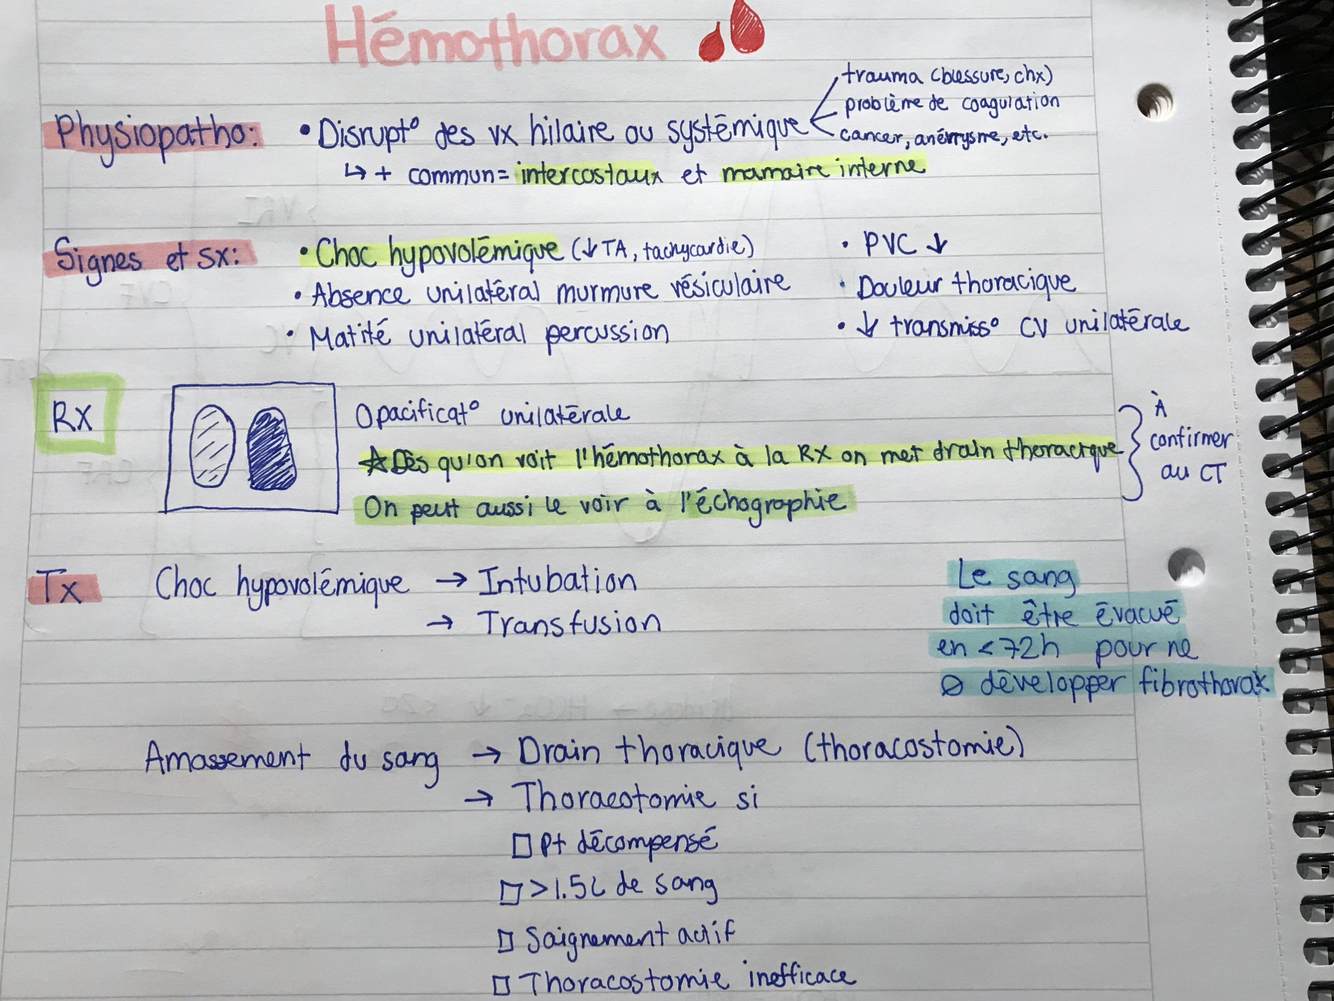 Hémothorax
trauma (blessure, chx)
problème de coagulation
cancer, anévrysme, etc.
Physiopatho: • Disrupt° des vx hilaire ou systémique
↳ + commun = intercostaux et mamaire interne
Signes et sx: • Choc hypovolémique (↓ TA, tachycardie) • PVC ↓
• Absence unilatéral murmure vésiculaire • Douleur thoracique
• Matité unilatéral percussion • ↓ transmiss° CV unilatérale
RX Opacificat° unilatérale
☆ Dès qu'on voit l'hémothorax à la RX on met drain thoracique
On peut aussi le voir à l'échographie
À
confirmer
au CT
Tx Choc hypovolémique → Intubation
→ Transfusion
Le sang
doit être évacué
en < 72h pour ne
∅ développer fibrothorax
Amassement du sang → Drain thoracique (thoracostomie)
→ Thoracotomie si
□ Pt décompensé
□ > 1.5L de sang
□ Saignement actif
□ Thoracostomie inefficace